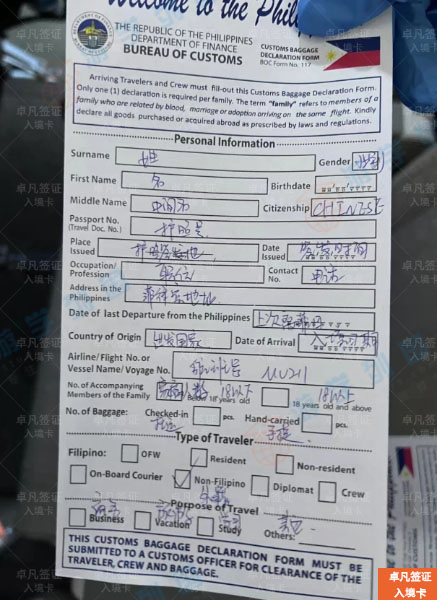 Welcome to the Phili
THE REPUBLIC OF THE PHILIPPINES
DEPARTMENT OF FINANCE
BUREAU OF CUSTOMS
CUSTOMS BAGGAGE
DECLARATION FORM
BOC Form No. 117
Arriving Travelers and Crew must fill-out this Customs Baggage Declaration Form.
Only one (1) declaration is required per family. The term "family" refers to members of a
family who are related by blood, marriage or adoption arriving on the same flight. Kindly
declare all goods purchased or acquired abroad as prescribed by laws and regulations.
Personal Information
Surname 姓 Gender 性别
First Name 名 Birthdate
Middle Name 中间名 Citizenship CHINESE
Passport No.
(Travel Doc. No.) 护照号
Place
Issued 护照签发地 Date
Issued 签发时间
Occupation/
Profession 职位 Contact
No. 电话
Address in the
Philippines 菲律宾地址
Date of last Departure from the Philippines
Country of Origin 出发国家 Date of Arrival 入境日期
Airline/Flight No. or
Vessel Name/Voyage No. 航班号 MU211
No. of Accompanying
Members of the Family 18以下 Below 18 years old 18以上 18 years old and above
No. of Baggage: Checked-in 托运 pcs. Hand-carried 手提 pcs.
Type of Traveler
Filipino: OFW Resident Non-resident
On-Board Courier Non-Filipino Diplomat Crew
Purpose of Travel
Business Vacation Study Others:
THIS CUSTOMS BAGGAGE DECLARATION FORM MUST BE
SUBMITTED TO A CUSTOMS OFFICER FOR CLEARANCE OF THE
TRAVELER, CREW AND BAGGAGE.
卓凡签证
入境卡